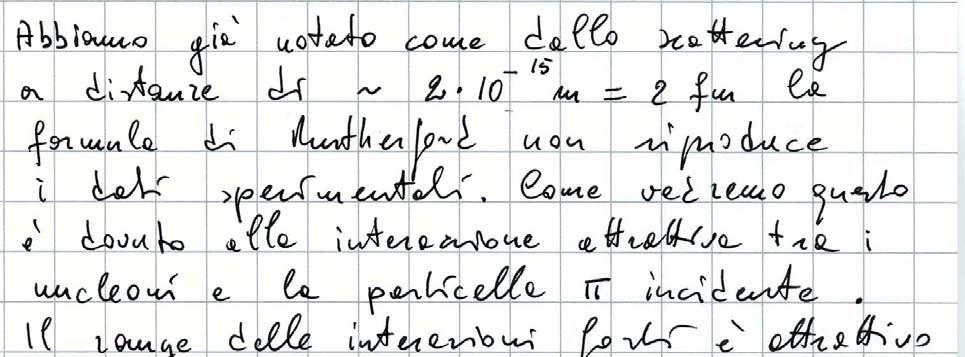 Abbiamo già notato come dallo scattering
a distanze di ~ 2·10⁻¹⁵ m = 2 fm la
formula di Rutherford non riproduce
i dati sperimentali. Come vedremo questo
è dovuto alla interazione attrattiva tra i
nucleoni e la particella π incidente.
Il range delle interazioni forti è attrattivo